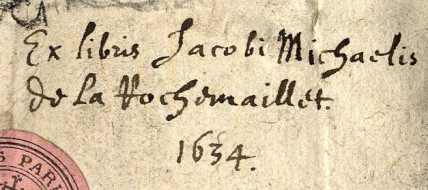 Ex libris Jacobi Michaelis
de la Rochemaillet.
1634.